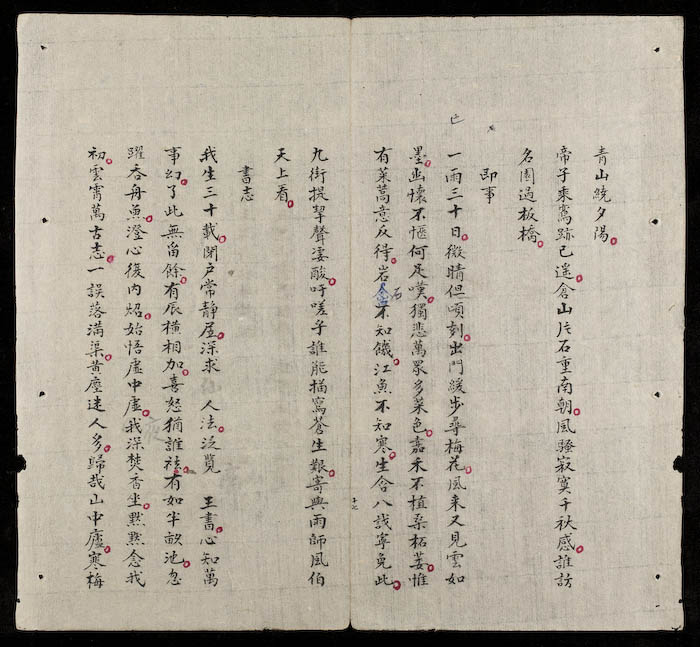 青山繞夕陽
帝子乘鸞跡已遙倉山片石重南朝風騷寂寞千秋感誰訪
名園過板橋
即事
一雨三十日微晴但頃刻出門緩步尋梅花風来又見雲如
墨幽懷不愜何足嘆獨悲萬眾多菜色嘉禾不植桑柘萎惟
有菜蒿意反得岩石不知饑江魚不知寒生含八識寧免此
十七
九街提挈聲凄酸吁嗟乎誰能描寫蒼生艱寄與雨師風伯
天上看
書志
我生三十載閉户常靜居深求仙人法泛覽 王書心知萬
事幻了此無畱餘有辰橫相加喜怒猶誰袪有如半畝池忽
躍吞舟魚澄心復内炤始悟虛中虛我深焚香坐默默念我
初雲霄萬古志一誤落溝渠黄塵迷人多歸哉山中廬寒梅